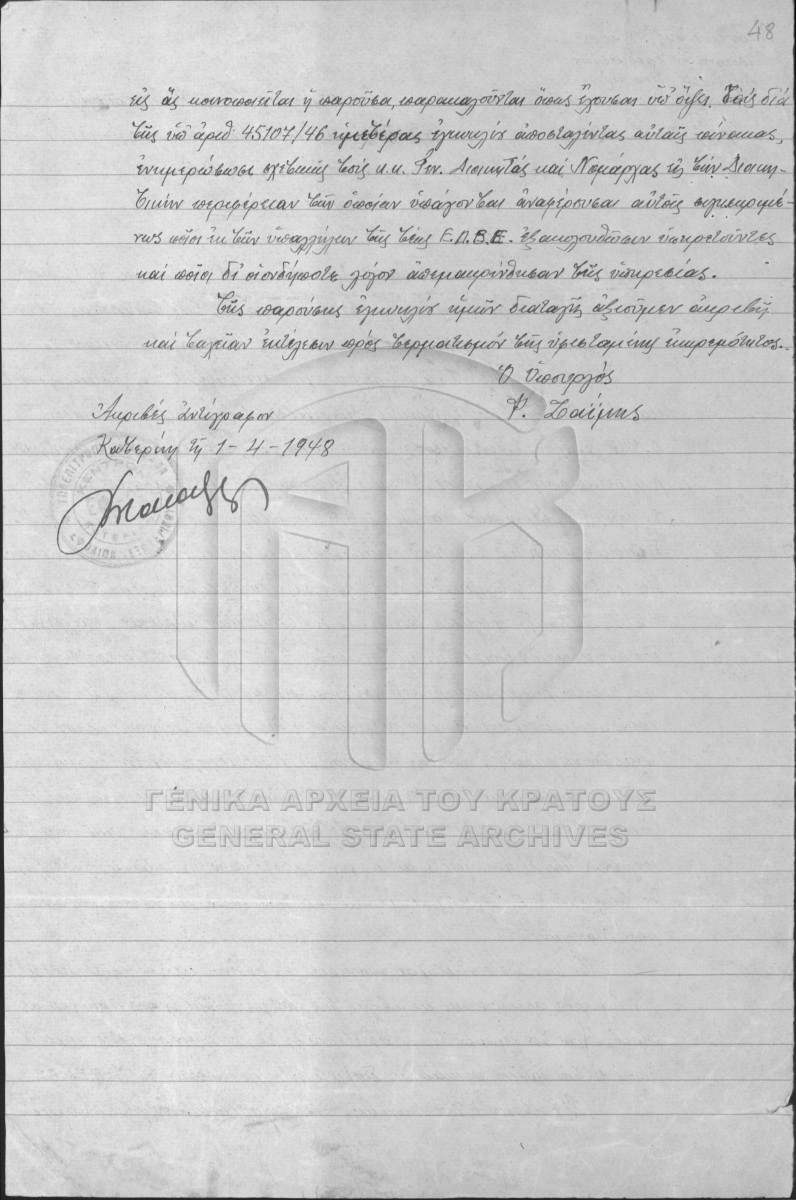 48
εἰς ἃς κοινοποιεῖται ἡ παροῦσα, παρακαλοῦνται ὅπως ἔχουσαι ὑπ' ὄψει τοὺς διὰ
τῆς ὑπ' ἀριθ. 45107/46 ἡμετέρας ἐγκυκλίου ἀποσταλέντας αὐταῖς πίνακας,
ἐνημερώσωσι σχετικῶς τοὺς κ.κ. Γεν. Διοικητὰς καὶ Νομάρχας εἰς τὴν Διοικη-
τικὴν περιφέρειαν τῶν ὁποίων ὑπάγονται ἀναφέρουσαι αὐτοῖς συγκεκριμέ-
νως ποῖοι ἐκ τῶν ὑπαλλήλων τῆς τέως Ε.Δ.Β.Ε. ἐξακολουθῶσιν ὑπηρετοῦντες
καὶ ποῖοι δι' οἱονδήποτε λόγον ἀπεμακρύνθησαν τῆς ὑπηρεσίας.
Τῆς παρούσης ἐγκυκλίου ἡμῶν διαταγῆς ἀξιοῦμεν ἀκριβῆ
καὶ ταχεῖαν ἐκτέλεσιν πρὸς τερματισμὸν τῆς ὑφισταμένης ἐκκρεμότητος.
Ὁ Ὑπουργός
Φ. Ζαΐμης
Ἀκριβὲς Ἀντίγραφον
Κατερίνη τῇ 1-4-1948
ΓΕΝΙΚΑ ΑΡΧΕΙΑ ΤΟΥ ΚΡΑΤΟΥΣ
GENERAL STATE ARCHIVES